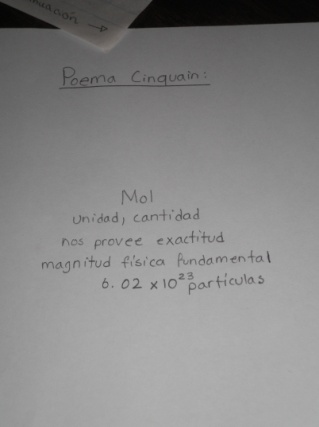 uación →
Poema Cinquain:
Mol
unidad, cantidad
nos provee exactitud
magnitud física fundamental
6.02 x10²³ partículas